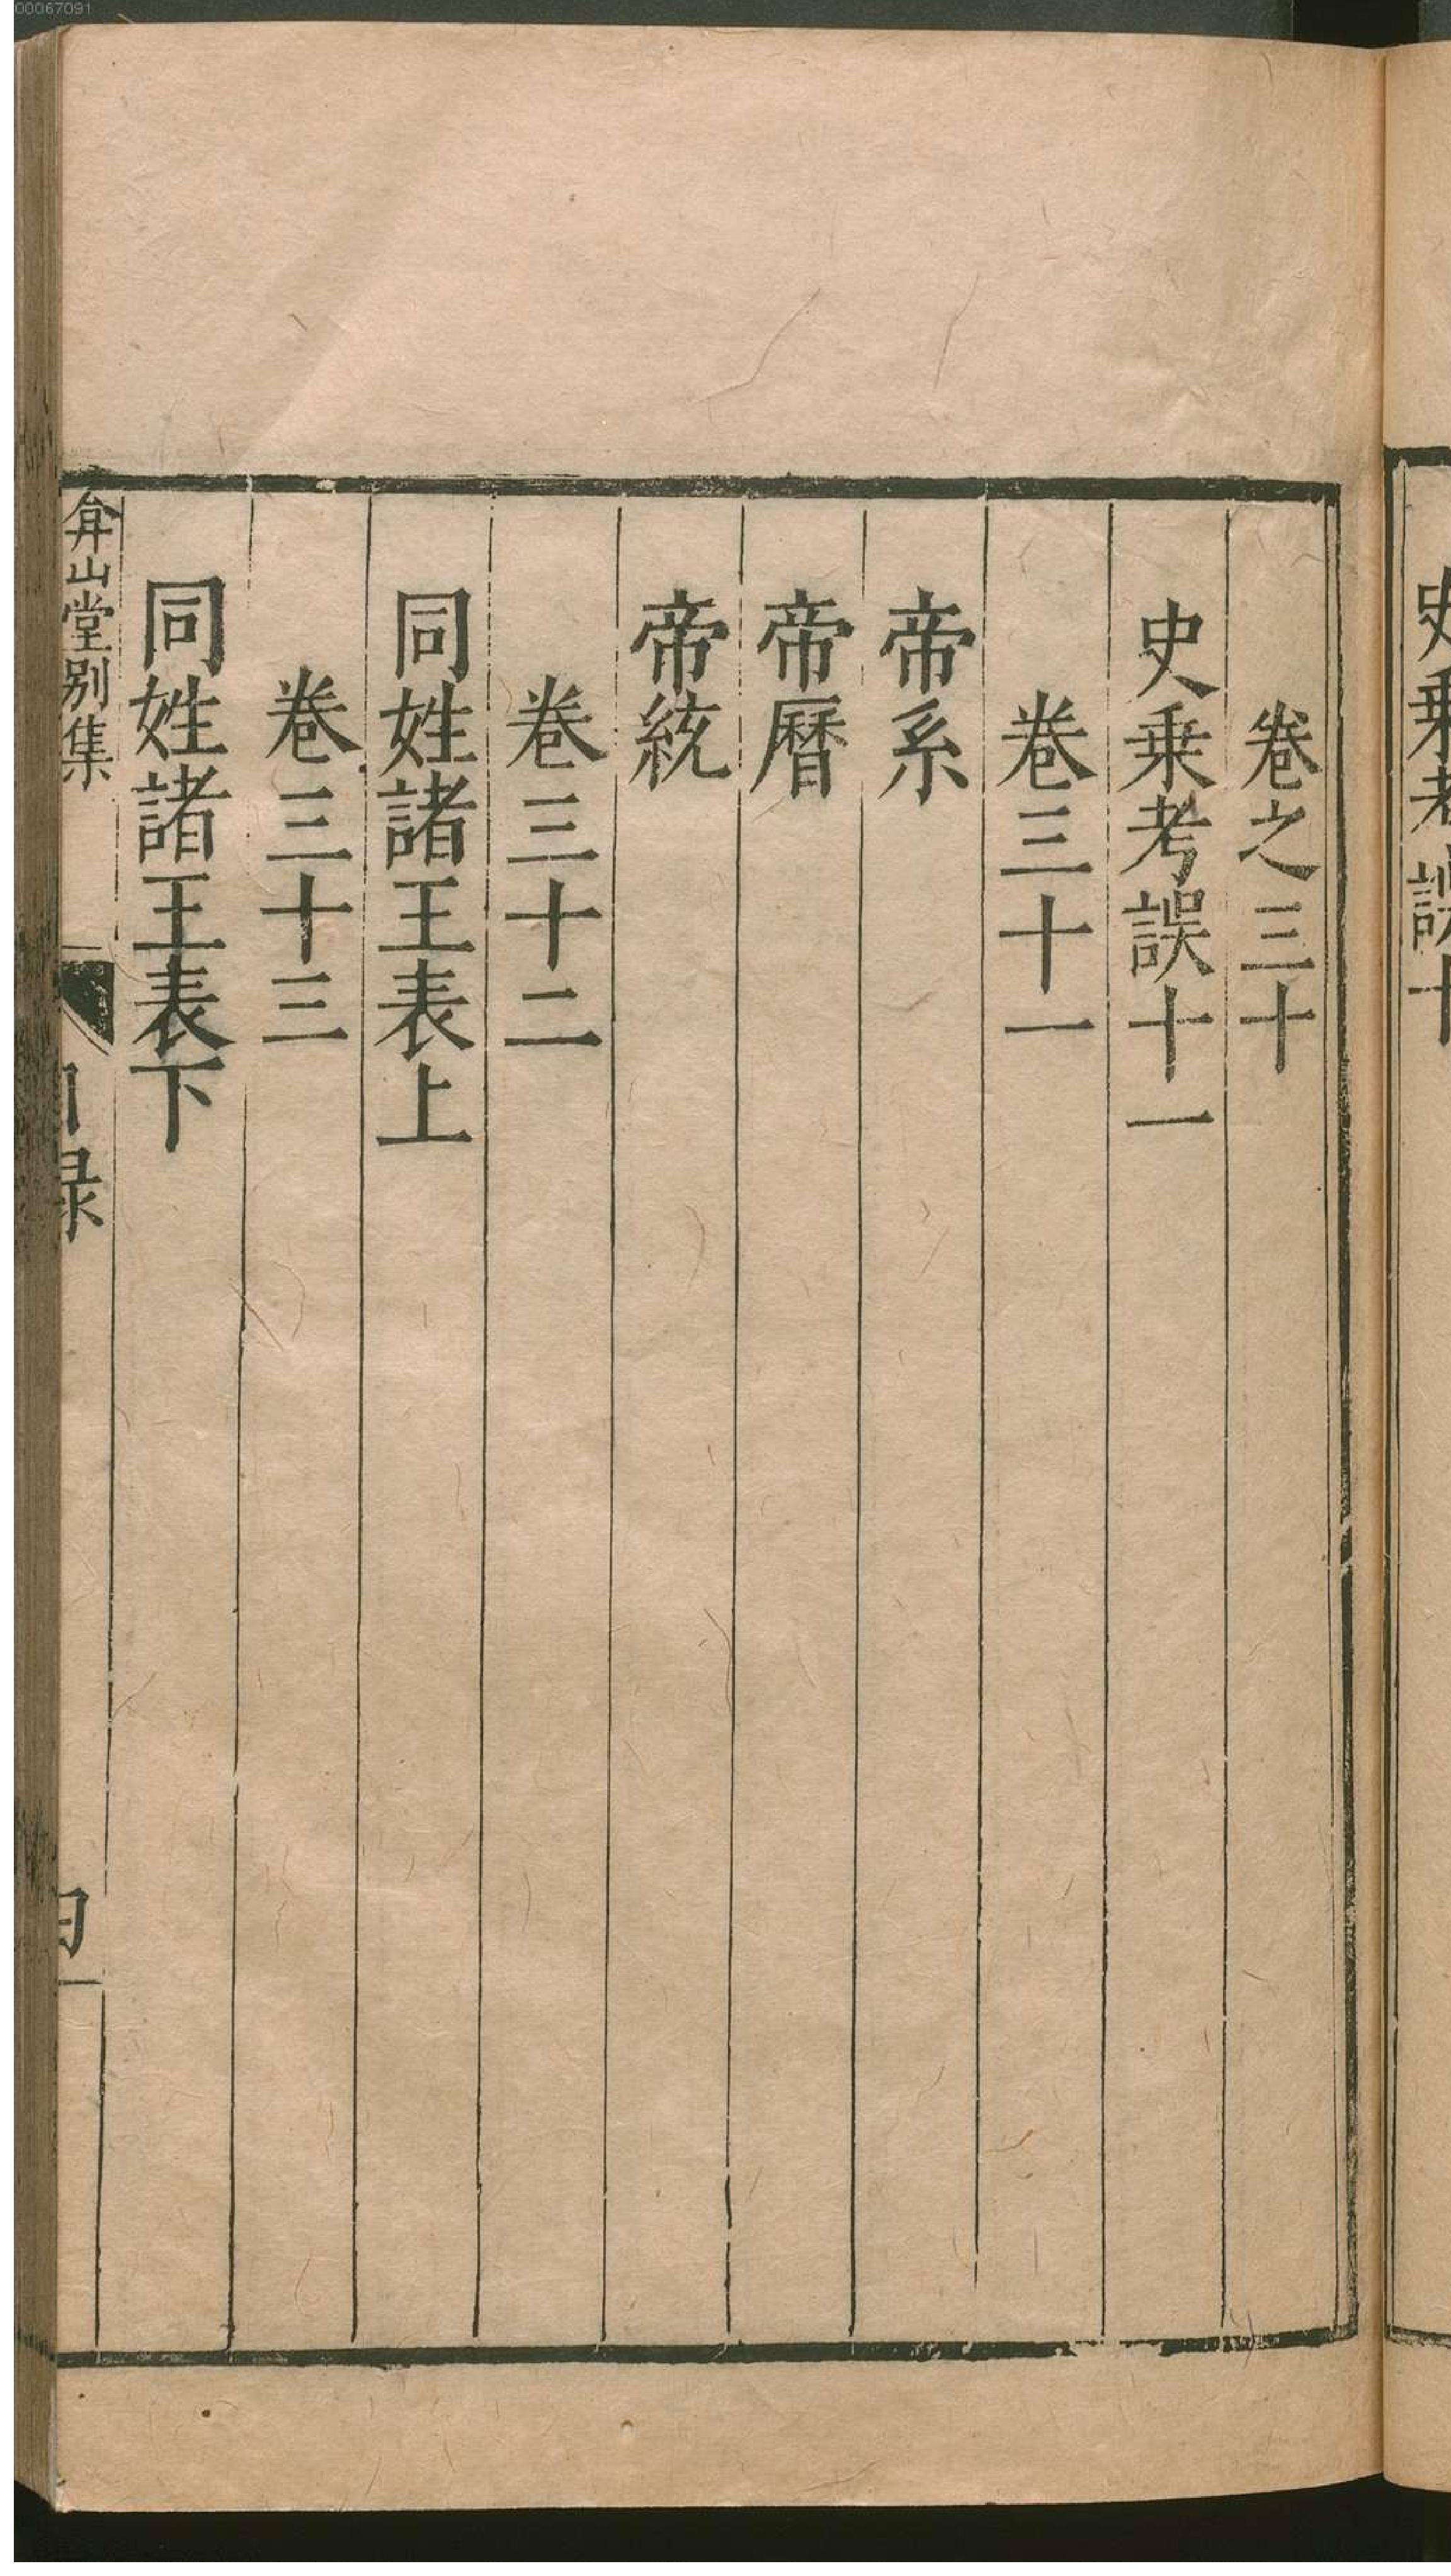 00067091
史乗考誤十
卷之三十
史乗考誤十一
卷三十一
帝系
帝曆
帝統
卷三十二
同姓諸王表上
卷三十三
同姓諸王表下
弇山堂別集
目録